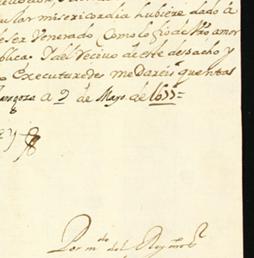 ular misericordia hubiere dado á
de ser Venerado Como lo fio de Vro amor
blica. Y del recivo de este despacho y
o Executaredes me dareis quenta
aragoza a 9 de Mayo de
Por m.do del Rey nro s.r